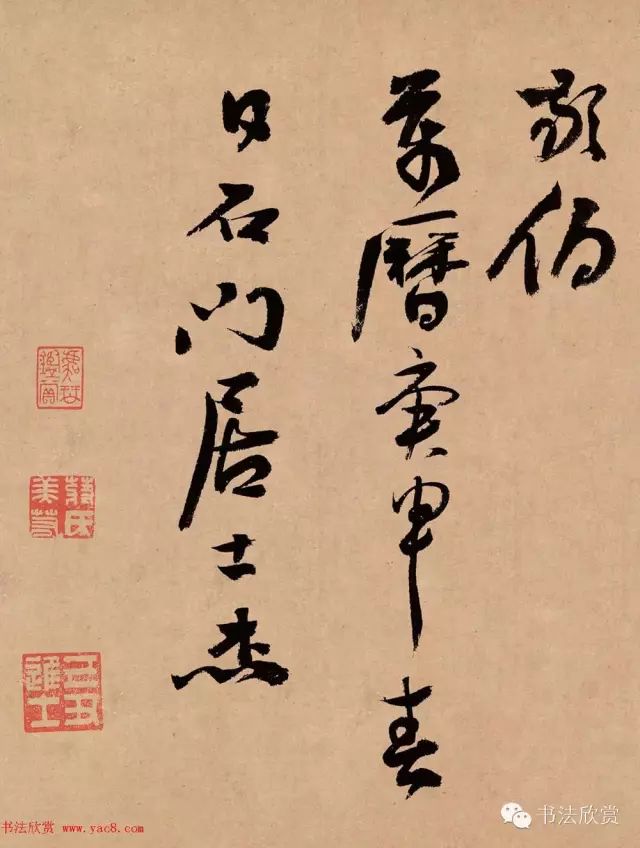 伯
萬曆庚申春
日石門居士杰
书法欣赏 www.yac8.com
书法欣赏